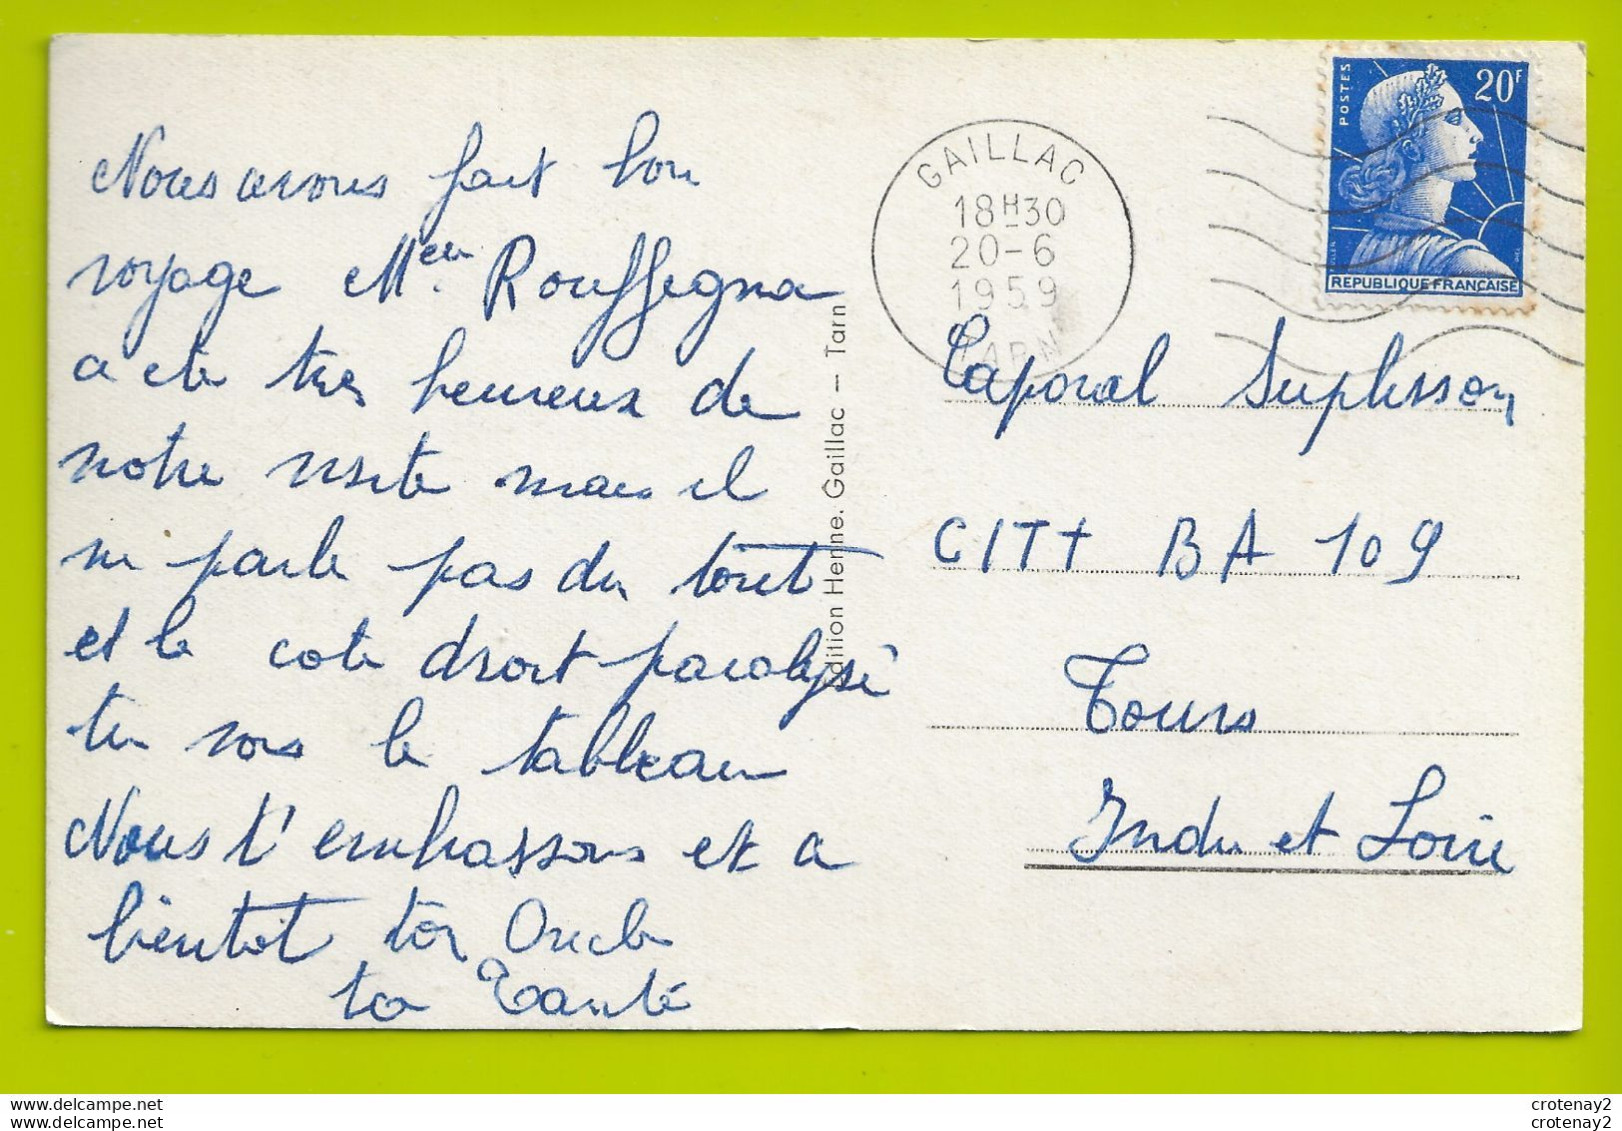 Nous avons fait bon
voyage Mr Rouffegna
a ete tres heureux de
notre visite mais il
ne parle pas du tout
et le cote droit paralysé
tu vois le tableau
Nous t'embrassons et a
bientot ton Oncle
ta Tante
Edition Henne. Gaillac — Tarn
GAILLAC
18H30
20-6
1959
TARN
POSTES
20F
REPUBLIQUE FRANÇAISE
Caporal Suplisson
CITT BA 109
Tours
Indre et Loire
delcampe.net
delcampe.net
crotenay2
crotenay2